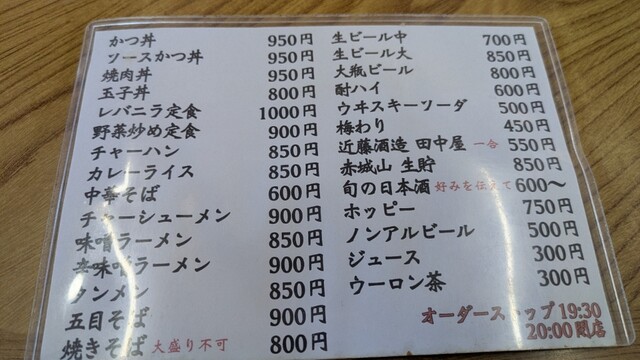 かつ丼 950円
ソースかつ丼 950円
焼肉丼 950円
玉子丼 800円
レバニラ定食 1000円
野菜炒め定食 900円
チャーハン 850円
カレーライス 850円
中華そば 600円
チャーシューメン 900円
味噌ラーメン 850円
辛味噌ラーメン 900円
タンメン 850円
五目そば 900円
焼きそば 大盛り不可 800円
生ビール中 700円
生ビール大 850円
大瓶ビール 800円
酎ハイ 600円
ウヰスキーソーダ 500円
梅わり 450円
近藤酒造 田中屋 一合 550円
赤城山 生貯 850円
旬の日本酒 好みを伝えて 600〜
ホッピー 750円
ノンアルビール 500円
ジュース 300円
ウーロン茶 300円
オーダーストップ 19:30
20:00閉店